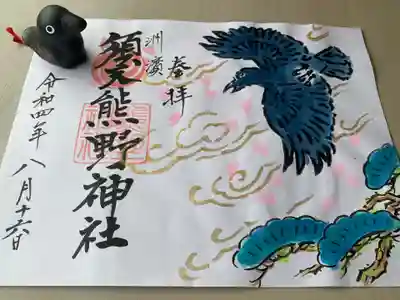 奉拝
洲濱
須天熊野神社
令和四年
八月十六日